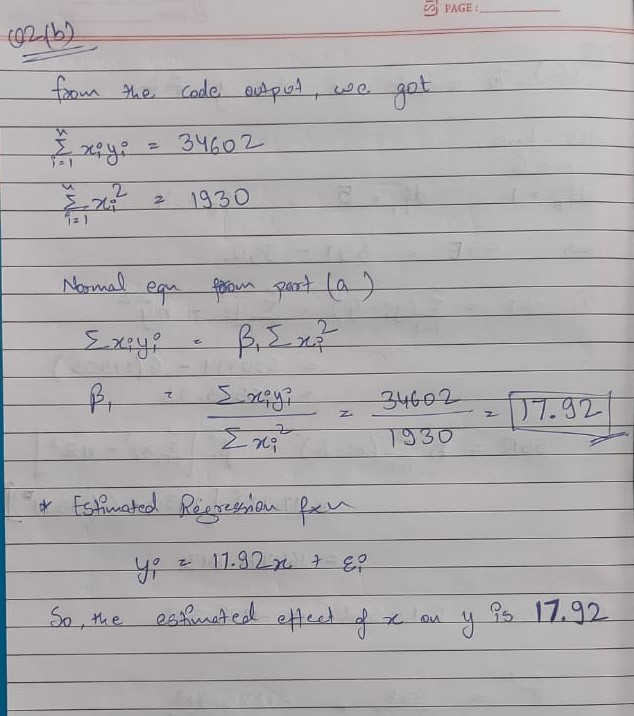 PAGE:
Q2(b)
from the code output, we got
n Σ i=1 xᵢyᵢ = 34602
n Σ i=1 xᵢ² = 1930
Normal eqn from part (a)
Σxᵢyᵢ = β₁ Σxᵢ²
β₁ = Σxᵢyᵢ / Σxᵢ² = 34602 / 1930 = 17.92
* Estimated Regression fxn
yᵢ = 17.92x + εᵢ
So, the estimated effect of x on y is 17.92